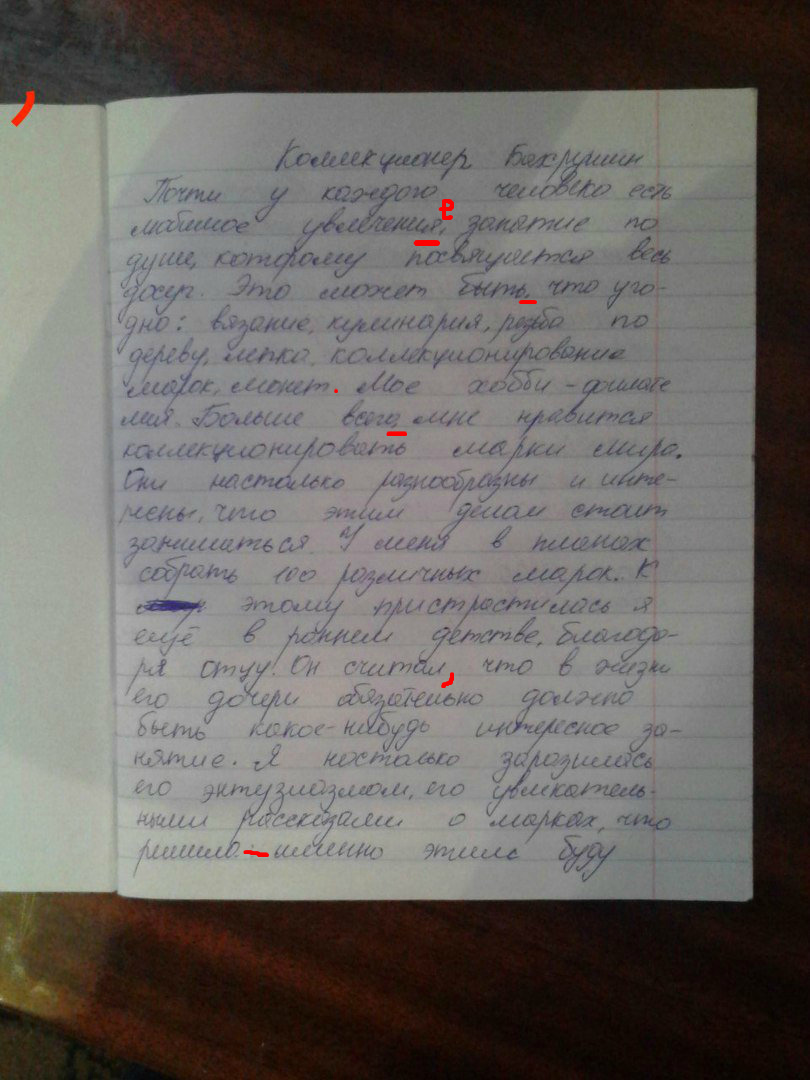 Коллекционер Бахрушин
Почти у каждого человека есть
любимое увлечения, занятие по
душе, которому посвящается весь
досуг. Это может быть, что уго-
дно: вязание, кулинария, резьба по
дереву, лепка, коллекционирование
марок, монет. Мое хобби - филате
лия. Больше всего, мне нравится
коллекционировать марки мира.
Они настолько разнообразны и инте-
ресны, что этим делом стоит
заниматься. У меня в планах
собрать 100 различных марок. К
этому пристрастилась я
ещё в раннем детстве, благода-
ря отцу. Он считал, что в жизни
его дочери обязательно должно
быть какое-нибудь интересное за-
нятие. Я настолько заразилась
его энтузиазмом, его увлекатель-
ными рассказами о марках, что
решила - именно этим буду